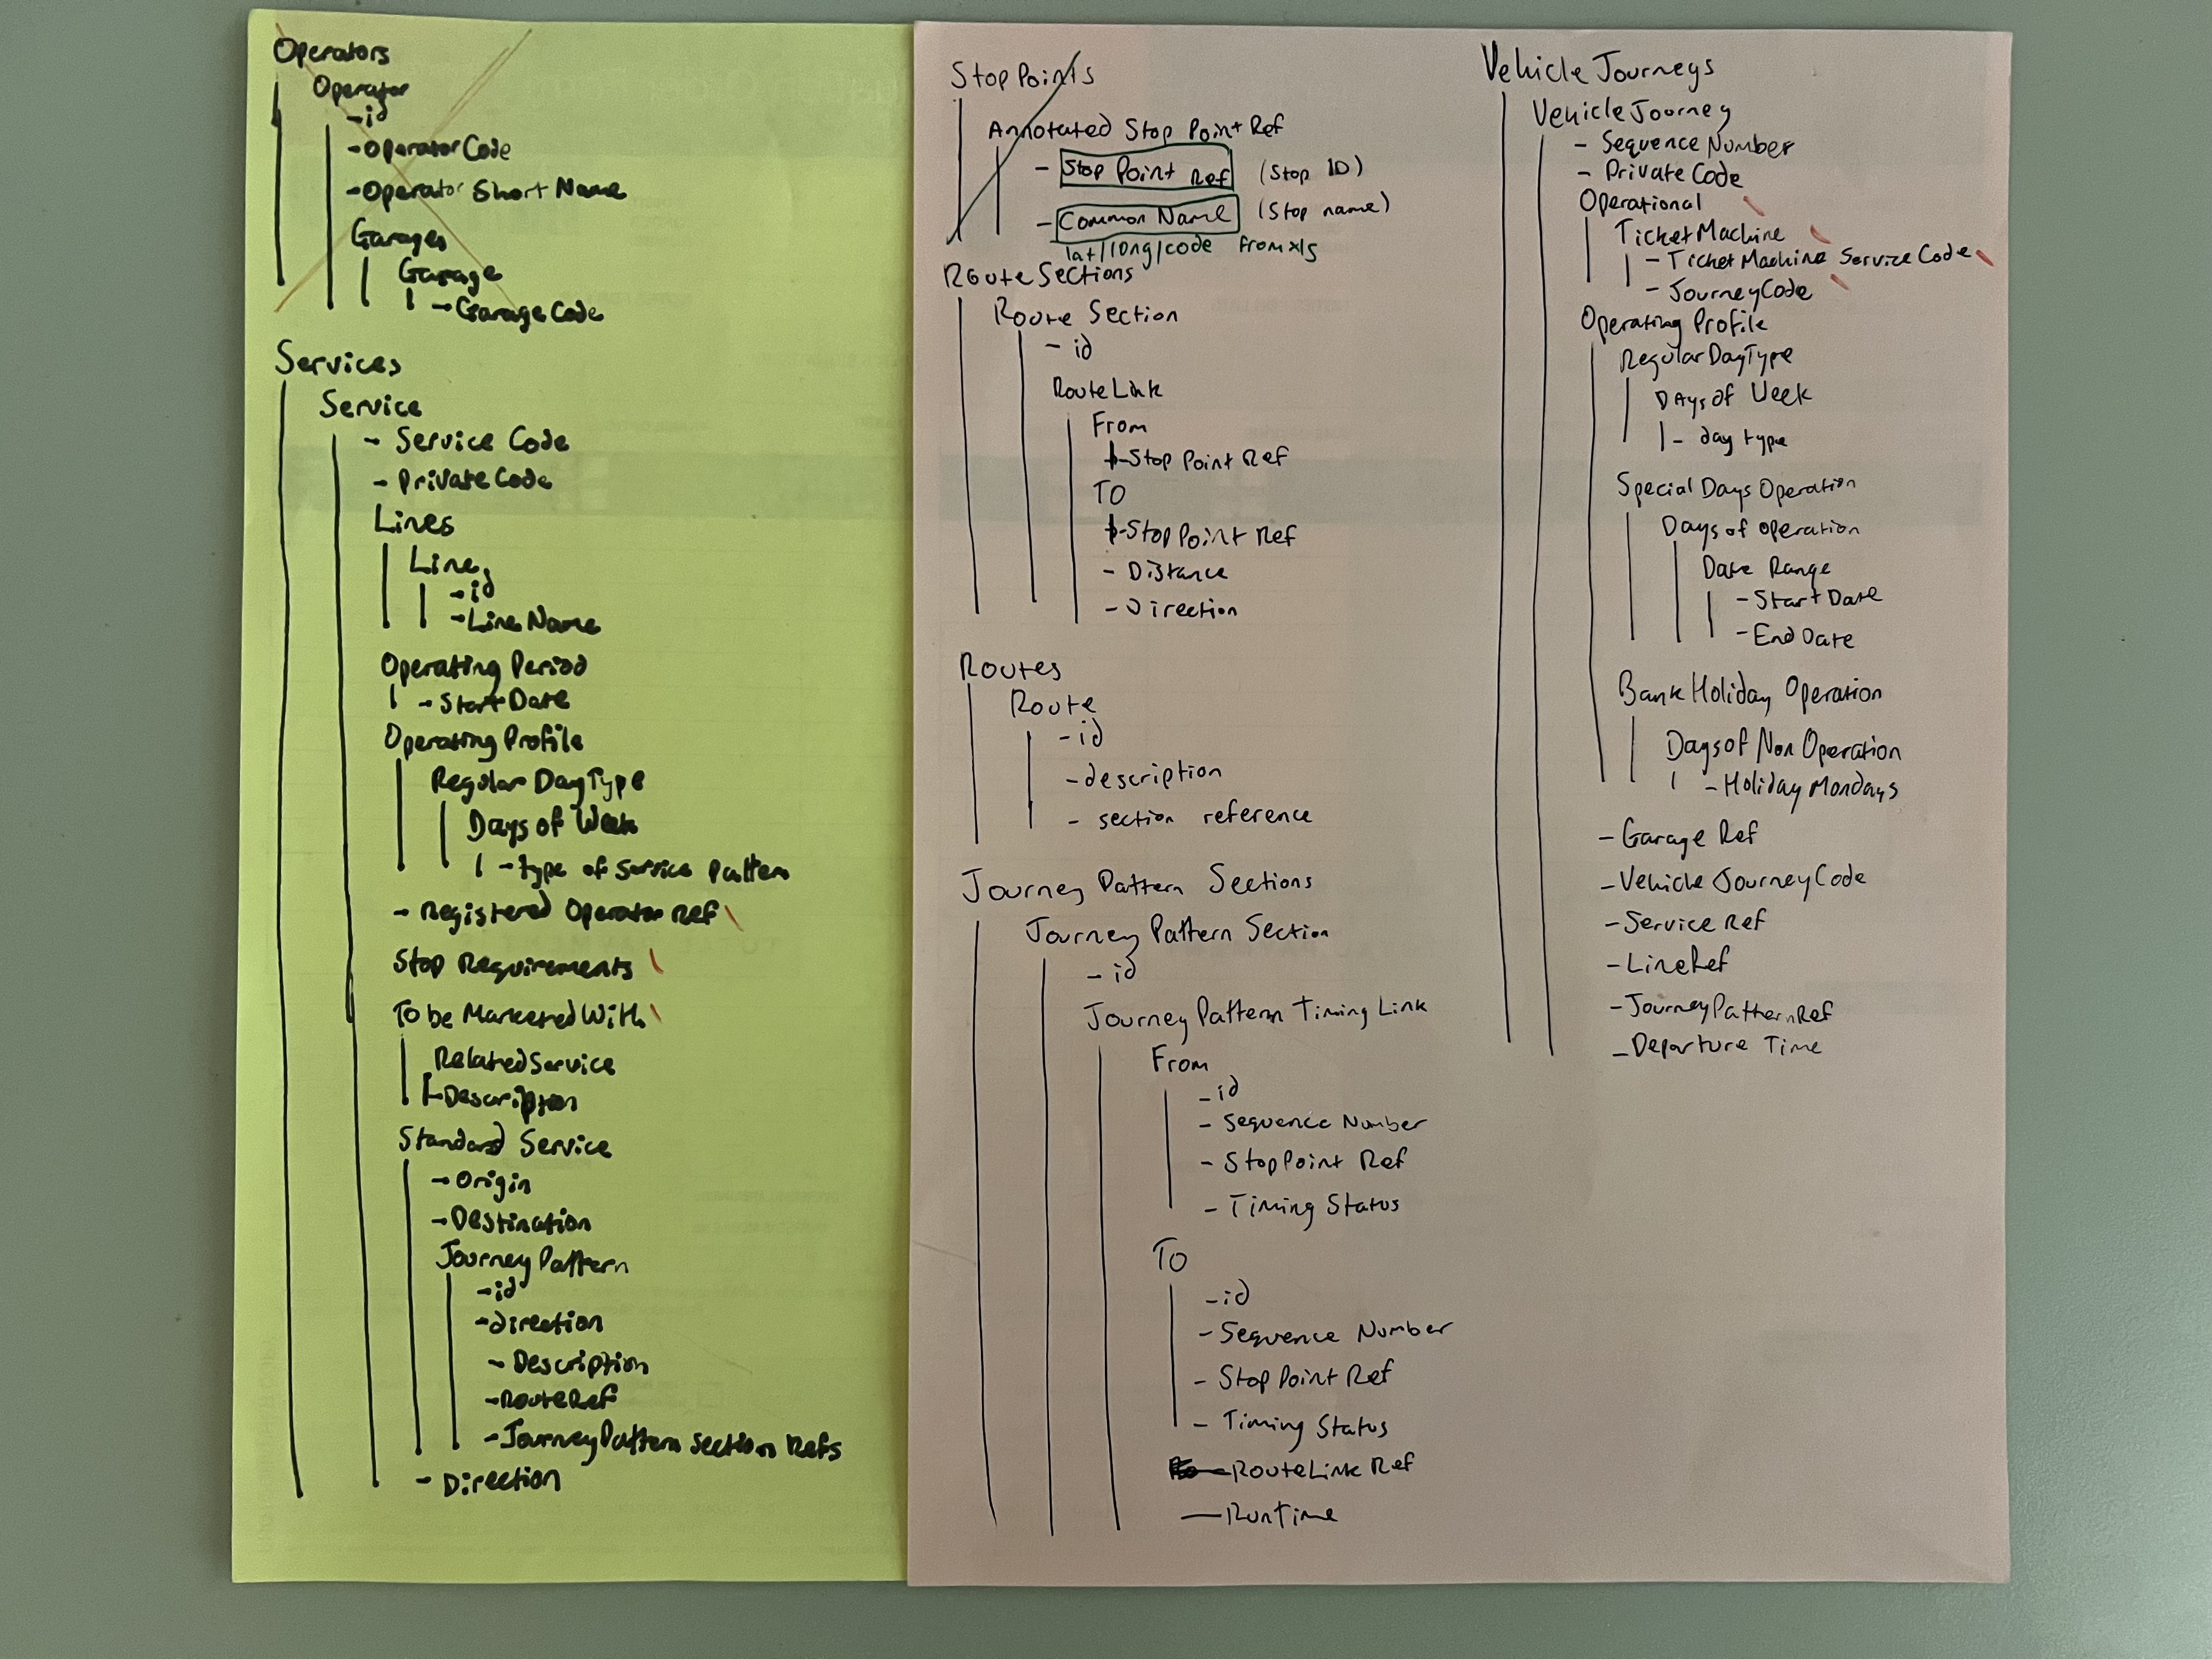 Operators
Operator
-id
-Operator Code
-Operator Short Name
Garages
Garage
-Garage Code
Services
Service
- Service Code
- Private Code
Lines
Line
-id
-Line Name
Operating Period
-Start Date
Operating Profile
Regular DayType
Days of Week
-type of service pattern
- Registered Operator Ref
Stop Requirements
To be Marketed With
Related Service
-Description
Standard Service
-Origin
-Destination
Journey Pattern
-id
-direction
- Description
-RouteRef
-JourneyPattern Section Refs
- Direction
Stop Points
Annotated Stop Point Ref
- Stop Point Ref (Stop ID)
- Common Name (Stop name)
lat/long/code from xls
Route Sections
Route Section
- id
RouteLink
From
-Stop Point Ref
TO
-Stop Point Ref
- Distance
- Direction
Routes
Route
-id
-description
- section reference
Journey Pattern Sections
Journey Pattern Section
- id
Journey Pattern Timing Link
From
-id
- Sequence Number
- StopPoint Ref
- Timing Status
To
-id
- Sequence Number
- Stop Point Ref
- Timing Status
-RouteLink Ref
-RunTime
Vehicle Journeys
Vehicle Journey
- Sequence Number
- Private Code
Operational
TicketMachine
- TicketMachine Service Code
- JourneyCode
Operating Profile
RegularDayType
Days of Week
- day type
Special Days Operation
Days of operation
Date Range
-Start Date
-End Date
Bank Holiday Operation
Days of Non Operation
-Holiday Mondays
-Garage Ref
-Vehicle JourneyCode
-Service Ref
-LineRef
-JourneyPatternRef
-Departure Time